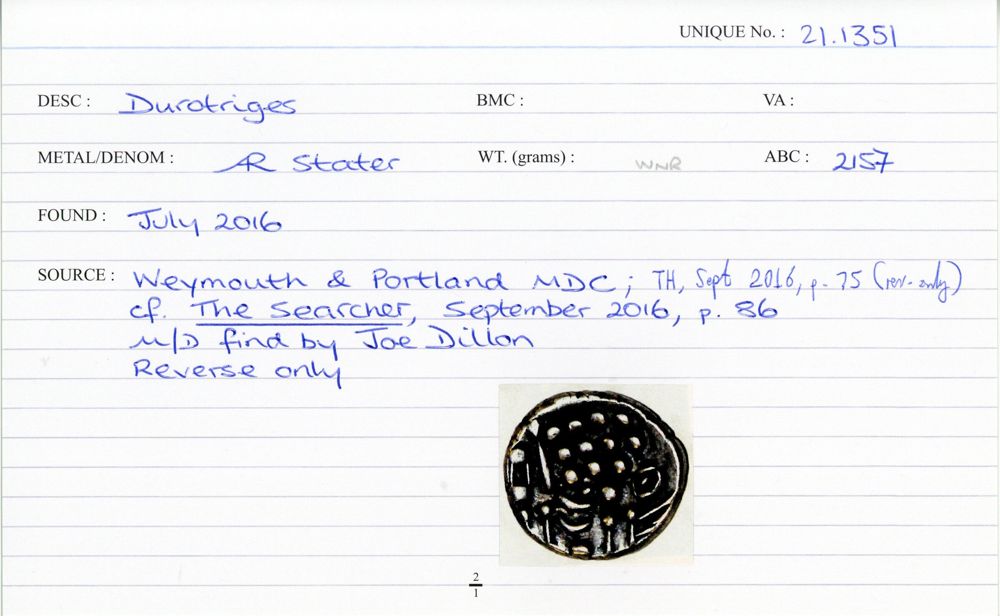 UNIQUE No. : 21.1351
DESC : Durotriges BMC : VA :
METAL/DENOM : AR Stater WT. (grams) : WNR ABC : 2157
FOUND : July 2016
SOURCE : Weymouth & Portland MDC; TH, Sept 2016, p. 75 (rev. only)
cf. The Searcher, September 2016, p. 86
M/D find by Joe Dillon
Reverse only
2
1